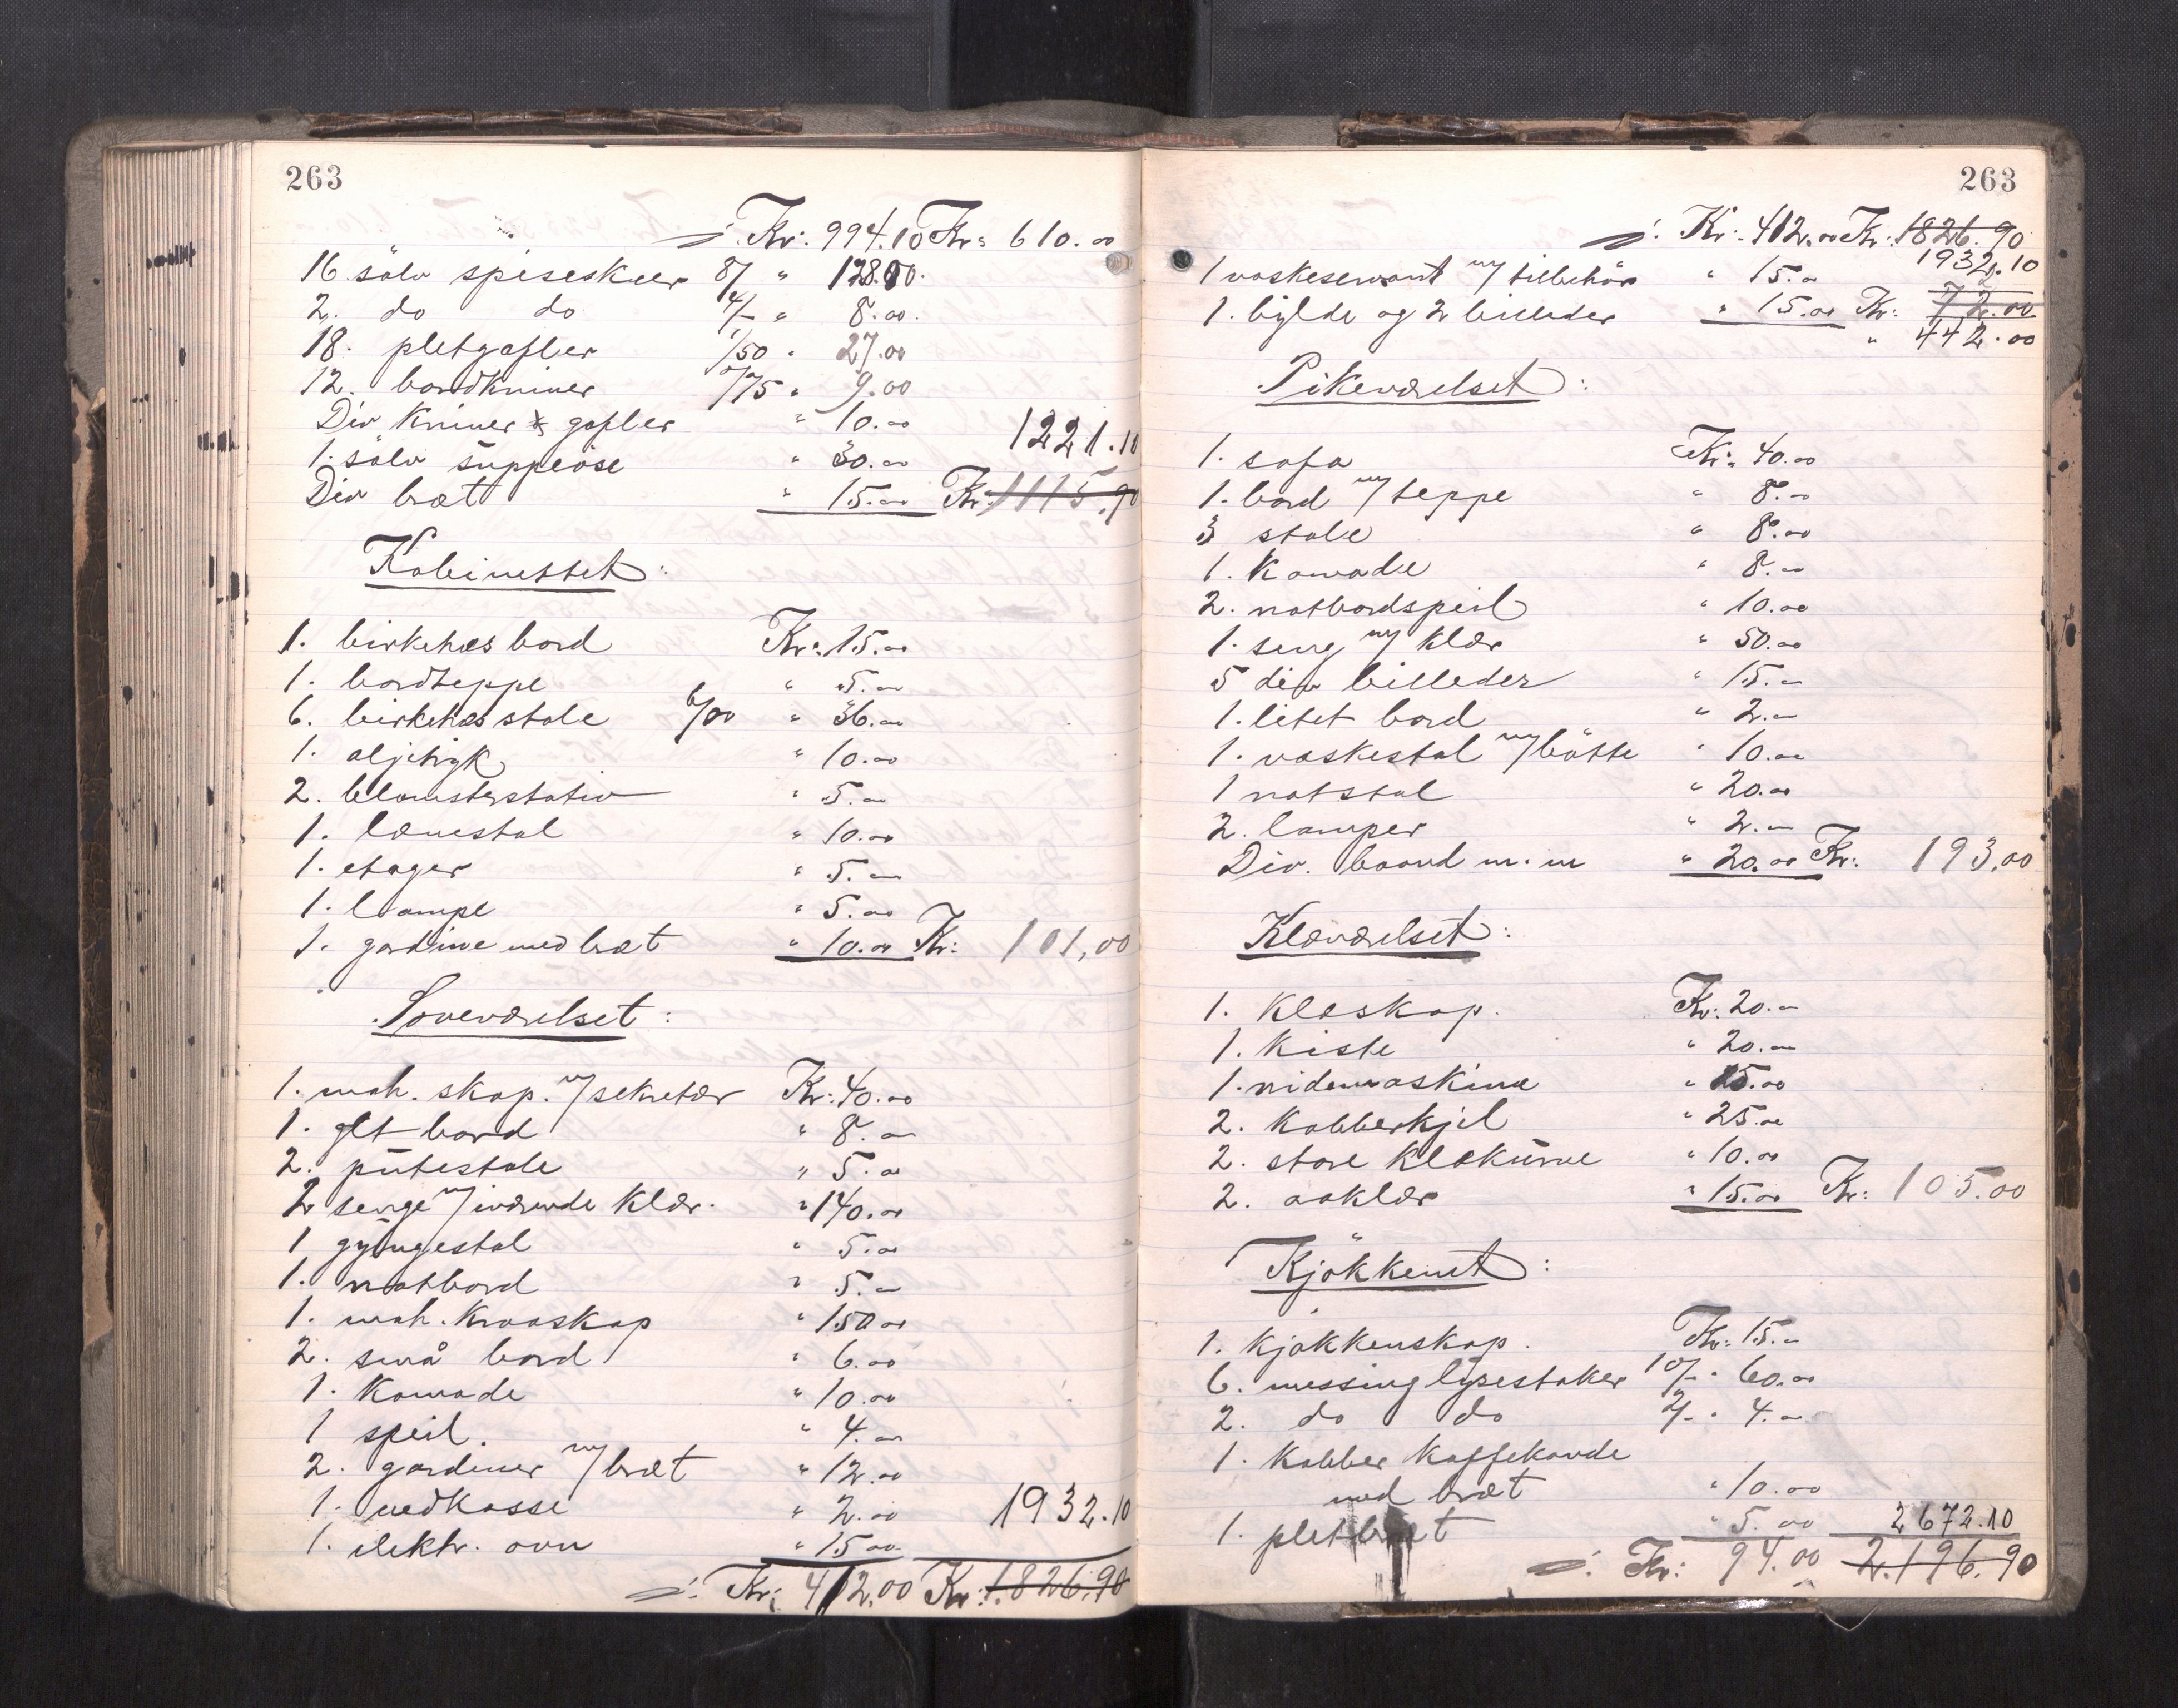 263
Kr. 994.10 Kr: 610.00
16. sølv spiseskeer 8/ " 128.00.
2. do do 4/- " 8.00.
18. pletgafler 1/50 " 27.00
12. bordkniver 0/75 " 9.00
Div kniver & gafler " 10.00
1221.10
1. sølv suppeøse " 30.00
Div bræt " 15.00 Kr. 1115.90
Kabinettet:
1. birketræs bord Kr: 15.00
1. bordteppe " 5.00
6. birketræs stole 6/00 " 36.00
1. oljetryk " 10.00
2. blomsterstativ " 5.00
1. lænestol " 10.00
1. etager " 5.00
1. lampe " 5.00
1. gardine med bræt " 10.00 Kr: 101,00
Soveværelset:
1. mah. skap. m/ sekretær Kr: 40.00
1. glt bord " 8.00
2. putestole " 5.00
2 senge m/ iværende klær. " 140.00
1 gyngestol " 5.00
1. natbord " 5.00
1. mah. kroaskap " 150 00
2. små bord " 6.00
1. Komode " 10.00
1 speil. " 4.00
2. gardiner m/ bræt " 12.00
1. vedkasse " 2.00 1932.10
1. elektr. ovn " 15 00
Kr: 412,00 Kr: 1.826.90
263
Kr: 412.00 Kr: 1826.90
1932.10
1 vaskeservant m/ tilbehør " 15.00
1. hylde og 2 billeder " 15.00 Kr: 72.00
" 442.00
Pikeværelset:
1. sofa Kr: 40.00
1. bord m/ teppe " 8.00
3 stole " 8.00
1. Komode " 8.00
2. natbordspeil " 10.00
1. seng m/ klær " 50.00
5 div billeder " 15.00
1. litet bord " 2.00
1. vaskestol m/ bøtte " 10.00
1 natstol " 20.00
2. lamper " 2.00
Div. baand m.m " 20.00 Kr: 193,00
Klæværelset:
1. Klæskap. Kr: 20.00
1. Kiste " 20.00
1. vridemaskine " 15.00
2. Kobberkjel " 25.00
2. store klækurve " 10.00
2. aaklær " 15.00 Kr: 105.00
Kjøkkenet:
1. Kjøkkenskap. Kr: 15.00
6. messing lysestaker 10/- " 60.00
2. do do 2/- " 4.00
1. Kobber Kaffekande
med bræt " 10.00
1. pletbræt " 5.00 2672.10
Kr: 94.00 2.196.90